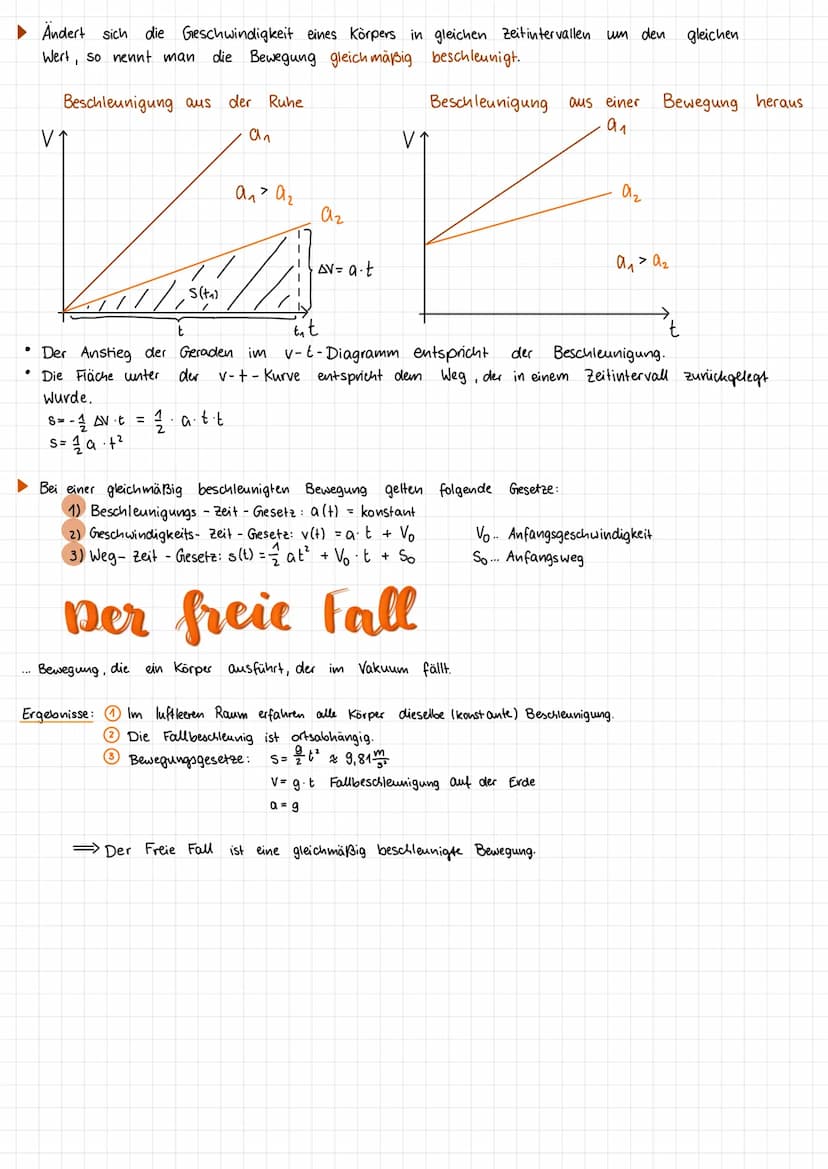 Ändert sich die Geschwindigkeit eines Körpers in gleichen Zeitintervallen um den gleichen
Wert, so nennt man die Bewegung gleichmäßig beschleunigt.
Beschleunigung aus der Ruhe
V
a₁
a₁ > a₂
a₂
ΔV = a·t
S(t₁)
t
t₁
t
Beschleunigung aus einer Bewegung heraus
V
a₁
a₂
a₁ > a₂
t
• Der Anstieg der Geraden im v-t-Diagramm entspricht der Beschleunigung.
• Die Fläche unter der v-t-Kurve entspricht dem Weg, der in einem Zeitintervall zurückgelegt
wurde.
s = -1/2 ΔV·t = 1/2 · a·t·t
s = 1/2 a · t²
Bei einer gleichmäßig beschleunigten Bewegung gelten folgende Gesetze:
1) Beschleunigungs-Zeit-Gesetz: a(t) = konstant
2) Geschwindigkeits-Zeit-Gesetz: v(t) = a·t + V₀ V₀.. Anfangsgeschwindigkeit
3) Weg-Zeit-Gesetz: s(t) = 1/2 at² + V₀·t + S₀ S₀... Anfangsweg
Der freie Fall
... Bewegung, die ein Körper ausführt, der im Vakuum fällt.
Ergebnisse: ① Im luftleeren Raum erfahren alle Körper dieselbe (konstante) Beschleunigung.
② Die Fallbeschleunig ist ortsabhängig.
③ Bewegungsgesetze: s = g/2 t² ≈ 9,81 m/s²
v = g·t Fallbeschleunigung auf der Erde
a = g
⟹ Der Freie Fall ist eine gleichmäßig beschleunigte Bewegung.